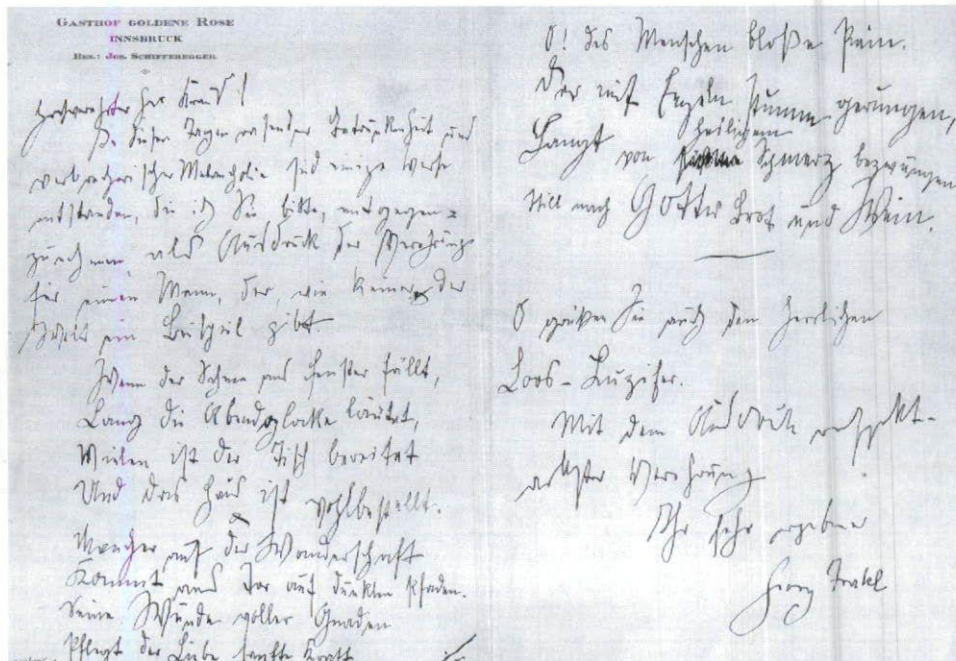 GASTHOF GOLDENE ROSE
INNSBRUCK
BES.: JOS. SCHIFFEREGGER
Hochverehrter Herr Kraus!
In diesen Tagen rasender Betrunkenheit und
verbrecherischer Melancholie sind einige Verse
entstanden, die ich Sie bitte, entgegen-
zunehmen, als Ausdruck der Verehrung
für einen Mann, der, wie keiner der
Welt ein Beispiel gibt.
Wenn der Schnee ans Fenster fällt,
Lang die Abendglocke läutet,
Vielen ist der Tisch bereitet
Und das Haus ist wohlbestellt.
Mancher auf der Wanderschaft
Kommt ans Tor auf dunklen Pfaden.
Seine Wunde voller Gnaden
Pflegt der Liebe sanfte Kraft.
O! des Menschen bloße Pein.
Der mit Engeln stumm gerungen,
heiligem
Langt von Schmerz bezwungen
Still nach Gottes Brot und Wein.
O grüßen Sie auch den herrlichen
Loos-Luzifer.
Mit dem Ausdruck respekt-
vollster Verehrung
Ihr sehr ergebener
Georg Trakl